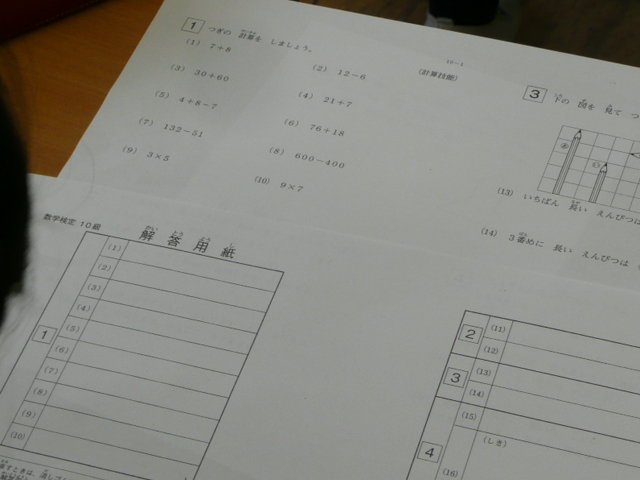 1 つぎの 計算を しましょう。
(1) 7+8
(2) 12−6
(3) 30+60
(4) 21+7
(5) 4+8−7
(6) 76+18
(7) 132−51
(8) 600−400
(9) 3×5
(10) 9×7
10−1
(計算技能)
3 下の 図を 見て つ
あ
(13) いちばん 長い えんぴつは
(14) 3番めに 長い えんぴつは
数学検定 10級
解答用紙
1
(1)
(2)
(3)
(4)
(5)
(6)
(7)
(8)
(9)
(10)
2
(11)
(12)
3
(13)
(14)
4
(15)
(しき)
(16)